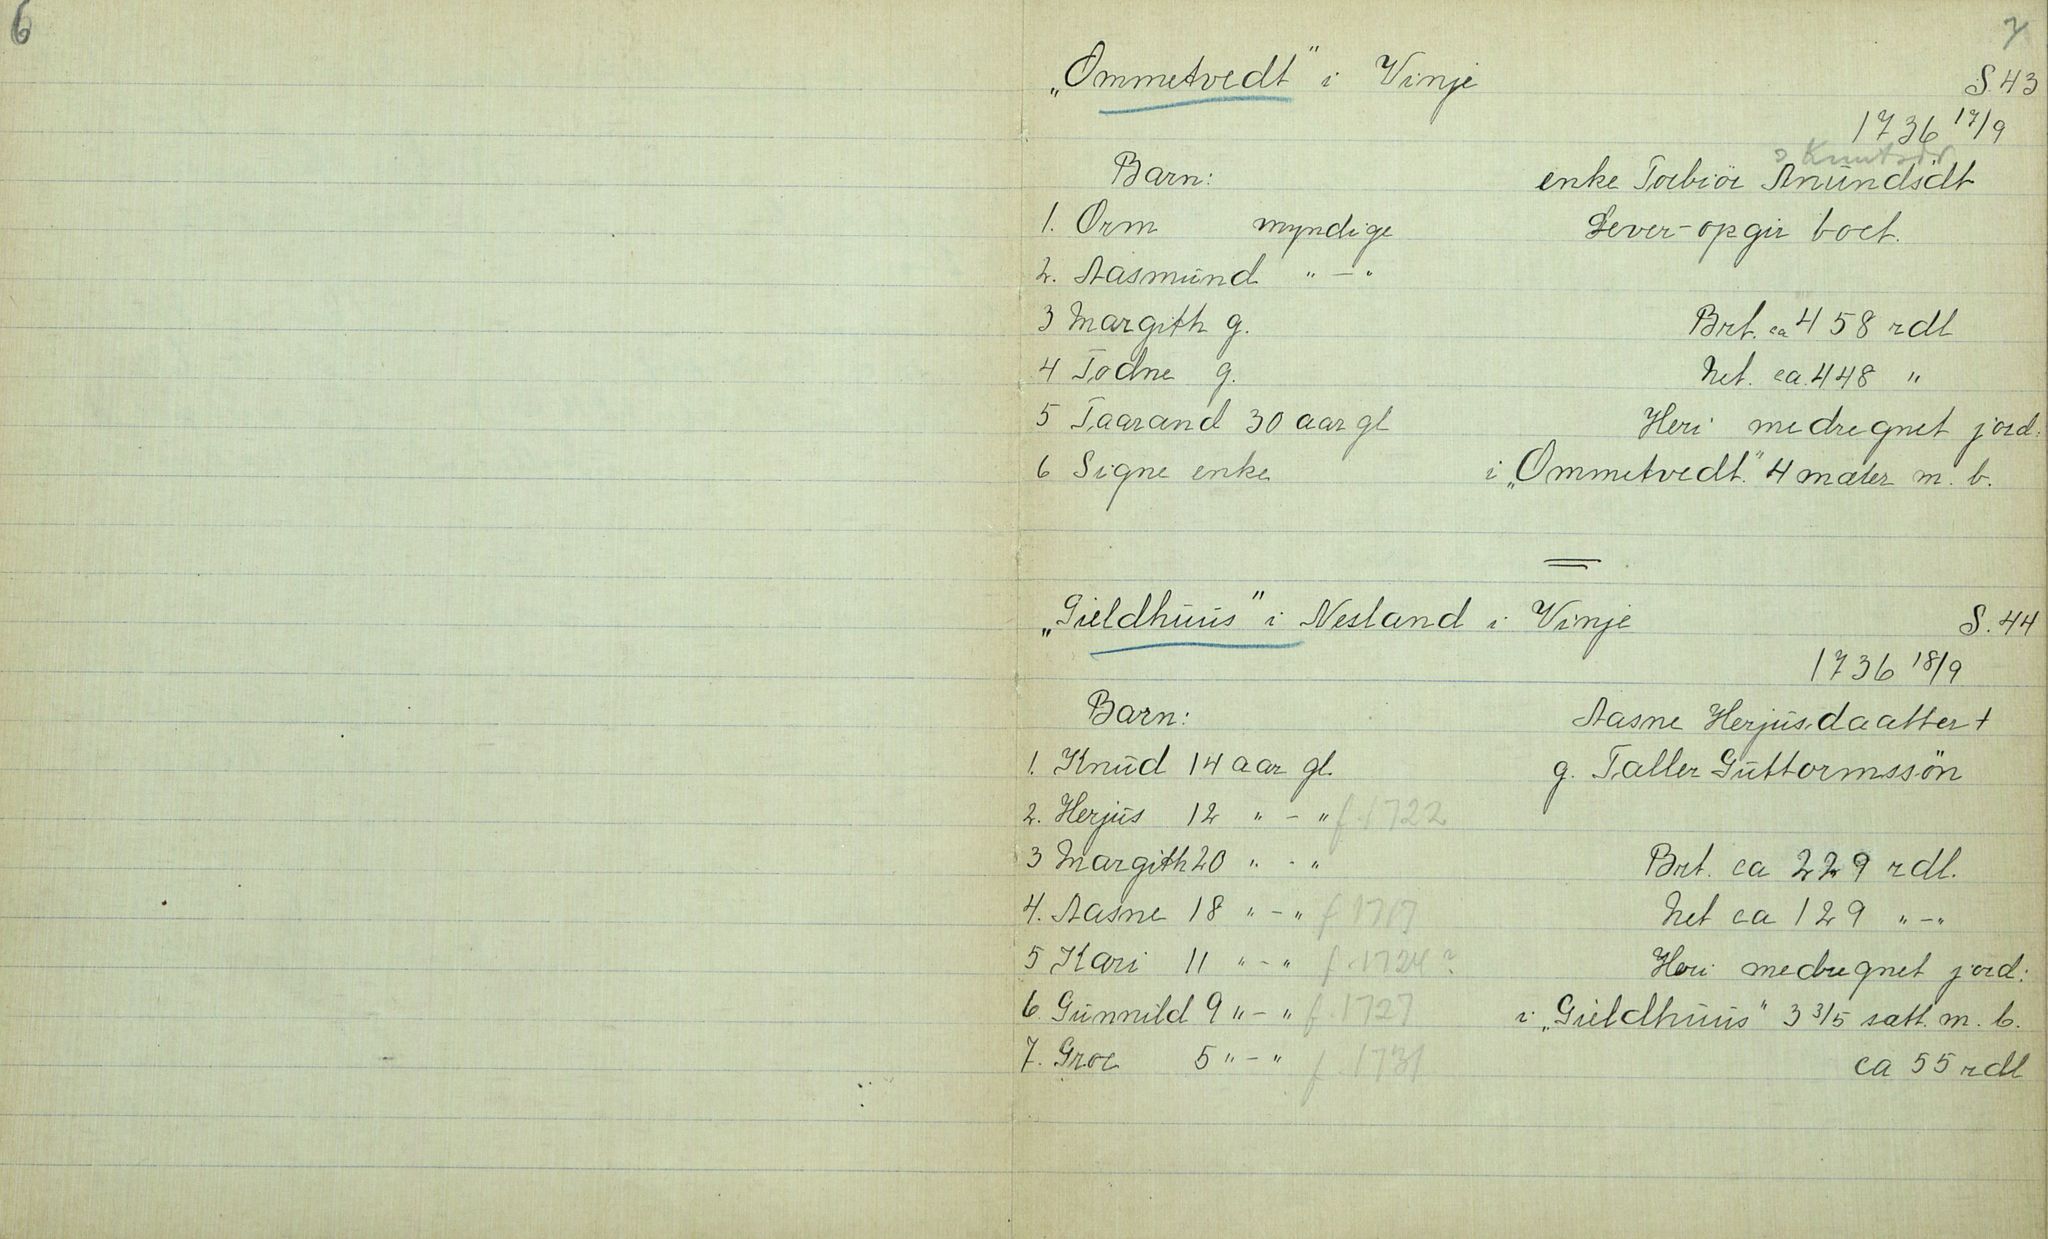 6
7
„Ommetvedt" i Vinje
S. 43
1736 17/9
? Knutsdr
Barn:
enke Torbiör Anundsdt
1. Orm myndige
Lever - opgir boet.
2. Aasmund " - "
3 Margith g.
Brt. ca 458 rdl
4 Todne g.
Net. ca. 448 "
5 Taarand 30 aar gl
Heri medregnet jord:
6 Signe enke
i „Ommetvedt." 4 mæler m. b.
„Gieldhuus" i Nesland i Vinje
S. 44
1736 18/9
Barn:
Aasne Herjusdaatter +
1. Knud 14 aar gl.
g. Taller Guttormssön
2. Herjus 12 " - " f. 1722
3 Margith 20 " - "
Brt. ca 229 rdl.
4. Aasne 18 " - " f 1717
Net ca 129 " - "
5 Kari 11 " - " f. 1724?
Heri medregnet jord:
6. Gunnild 9 " - " f. 1727
i „Gieldhuus" 3 3/5 sætt. m. b.
7. Groe 5 " - " f. 1731
ca 55 rdl